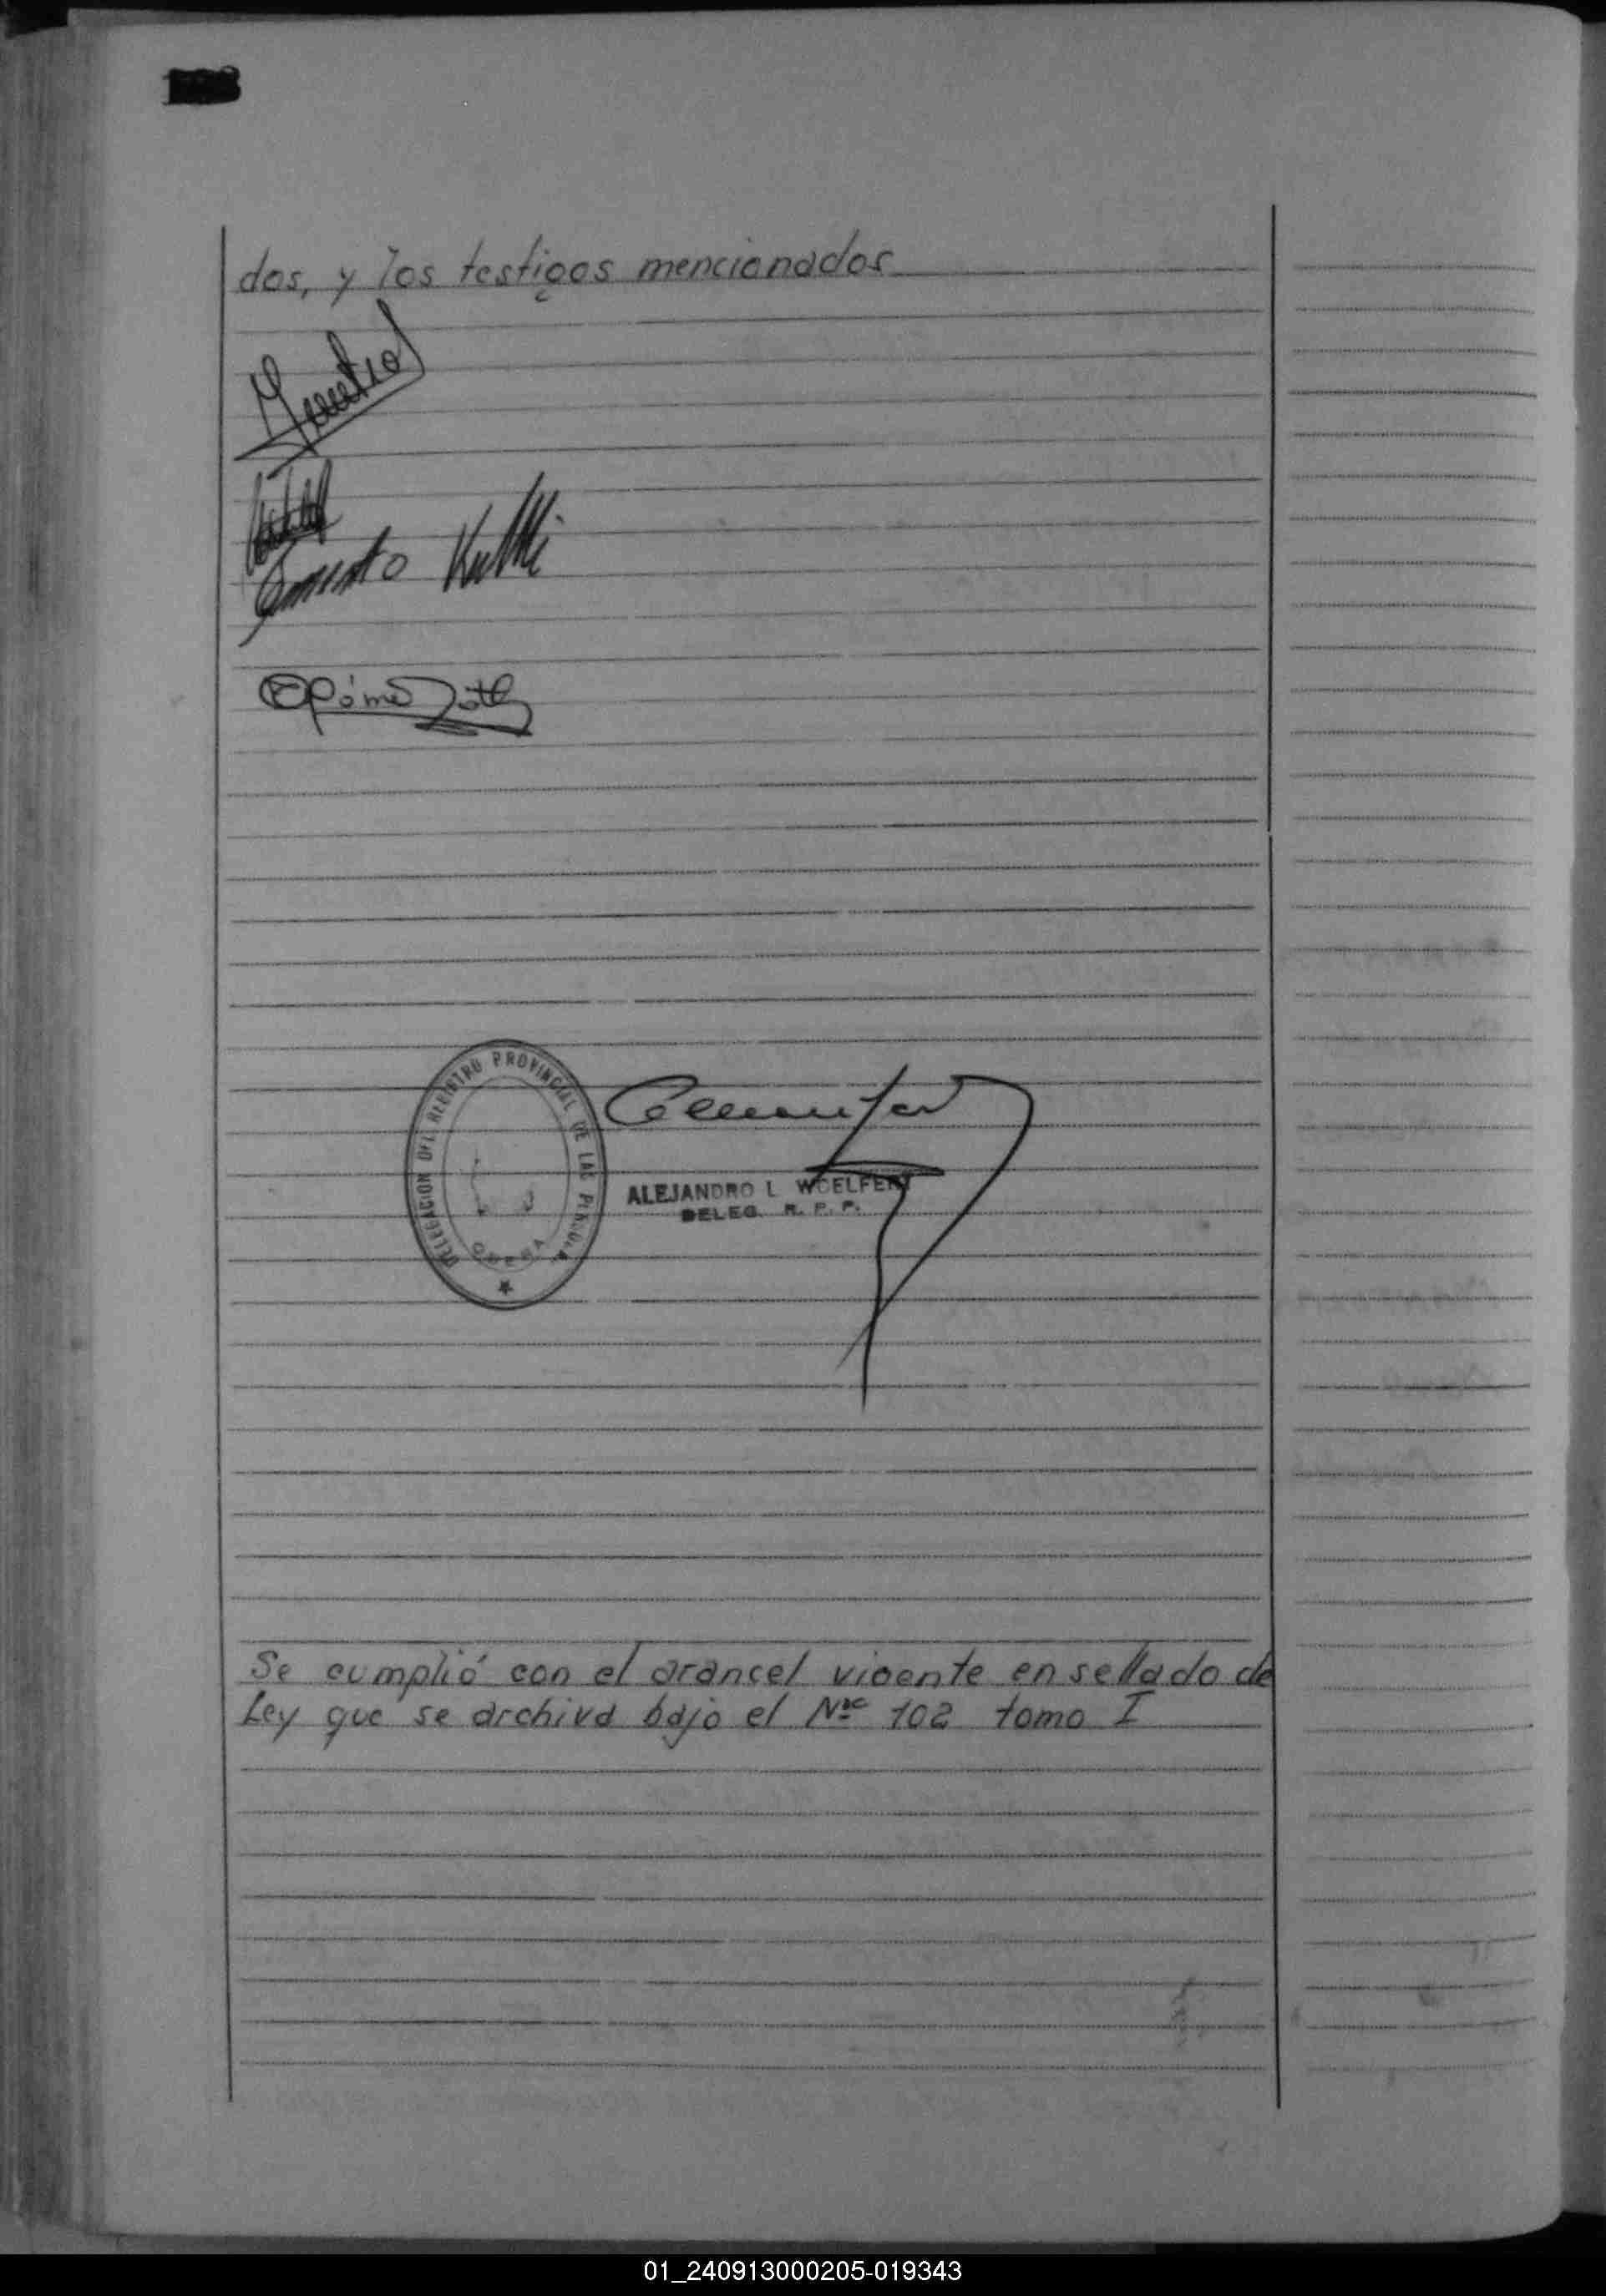 dos, y los testigos mencionados
Ernesto
DELEGACION DEL REGISTRO PROVINCIAL DE LAS PERSONAS
OBERA
ALEJANDRO L WOELFERT
DELEG. R. P. P.
Se cumplió con el arancel vigente en sellado de
Ley que se archiva bajo el Nro 102 tomo I
01_240913000205-019343